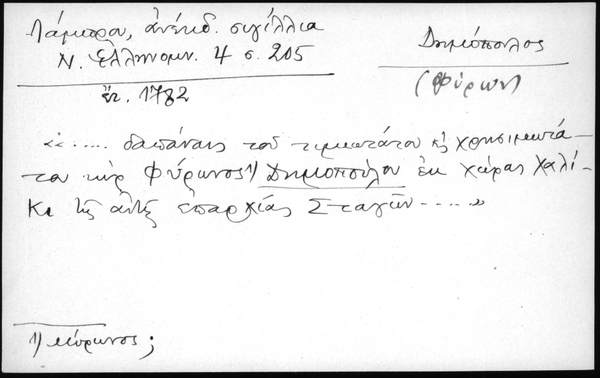 Λάμπρου, ἀνέκδ. σιγίλλια
Ν. Ἑλληνομν. 4 σ. 205
ἔτ. 1782
Δημόπουλος
(Φύρων)
«..... δαπάναις τοῦ τιμιωτάτου κ̀ χρησιμωτά-
του κὺρ Φύρωνος 1) Δημοπούλου ἐκ χώρας Χαλί-
κι τῆς αὐτῆς ἐπαρχίας Σταγῶν .....»
1) Μύρωνος;